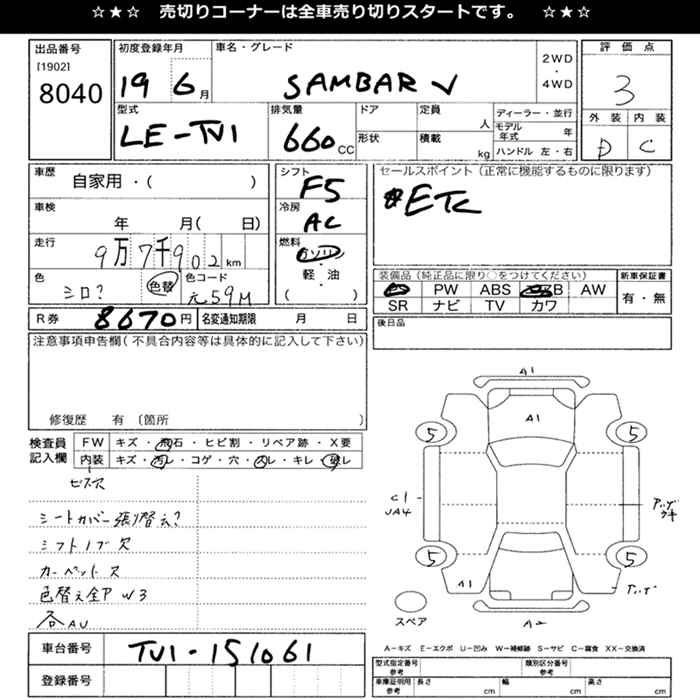 ☆★☆ 売切りコーナーは全車売り切りスタートです。 ☆★☆
出品番号
[1902]
8040
初度登録年月
19 6月
車名・グレード
SAMBAR V
2WD
・
4WD
評価点
3
型式
LE-TV1
排気量
660cc
ドア
形状
定員
人
積載
kg
ディーラー・並行
モデル年式 年
ハンドル 左・右
外装 内装
D C
車歴
自家用・( )
車検
年 月( 日)
走行
9万7千902km
色
シロ?
色替
色コード
元59M
シフト
F5
冷房
AC
燃料
ガソリン
・
軽・油
( )
セールスポイント(正常に機能するものに限ります)
ETC
装備品(純正品に限り○をつけてください)
PS PW ABS AW
SR ナビ TV カワ
新車保証書
有・無
R券 8670円
名変通知期限 月 日
後日品
注意事項申告欄(不具合内容等は具体的に記入して下さい)
修復歴 有(箇所 )
検査員
記入欄
FW キズ・飛石・ヒビ割・リペア跡・X要
内装 キズ・汚レ・コゲ・穴・スレ・キレ・破レ
ビスス
シートカバー張り替え?
シフトノブ欠
カーペットス
色替え全P W3
各AU
車台番号
TV1-151061
登録番号
A1
A1
5
5
C1
JA4
5
5
A1
A2
スペア
A－キズ E－エクボ U－凹み W－補修跡 S－サビ C－腐食 XX－交換済
型式指定番号
参考
類別区分番号
参考
車庫証明用
参考
長さ cm
幅 cm
高さ cm